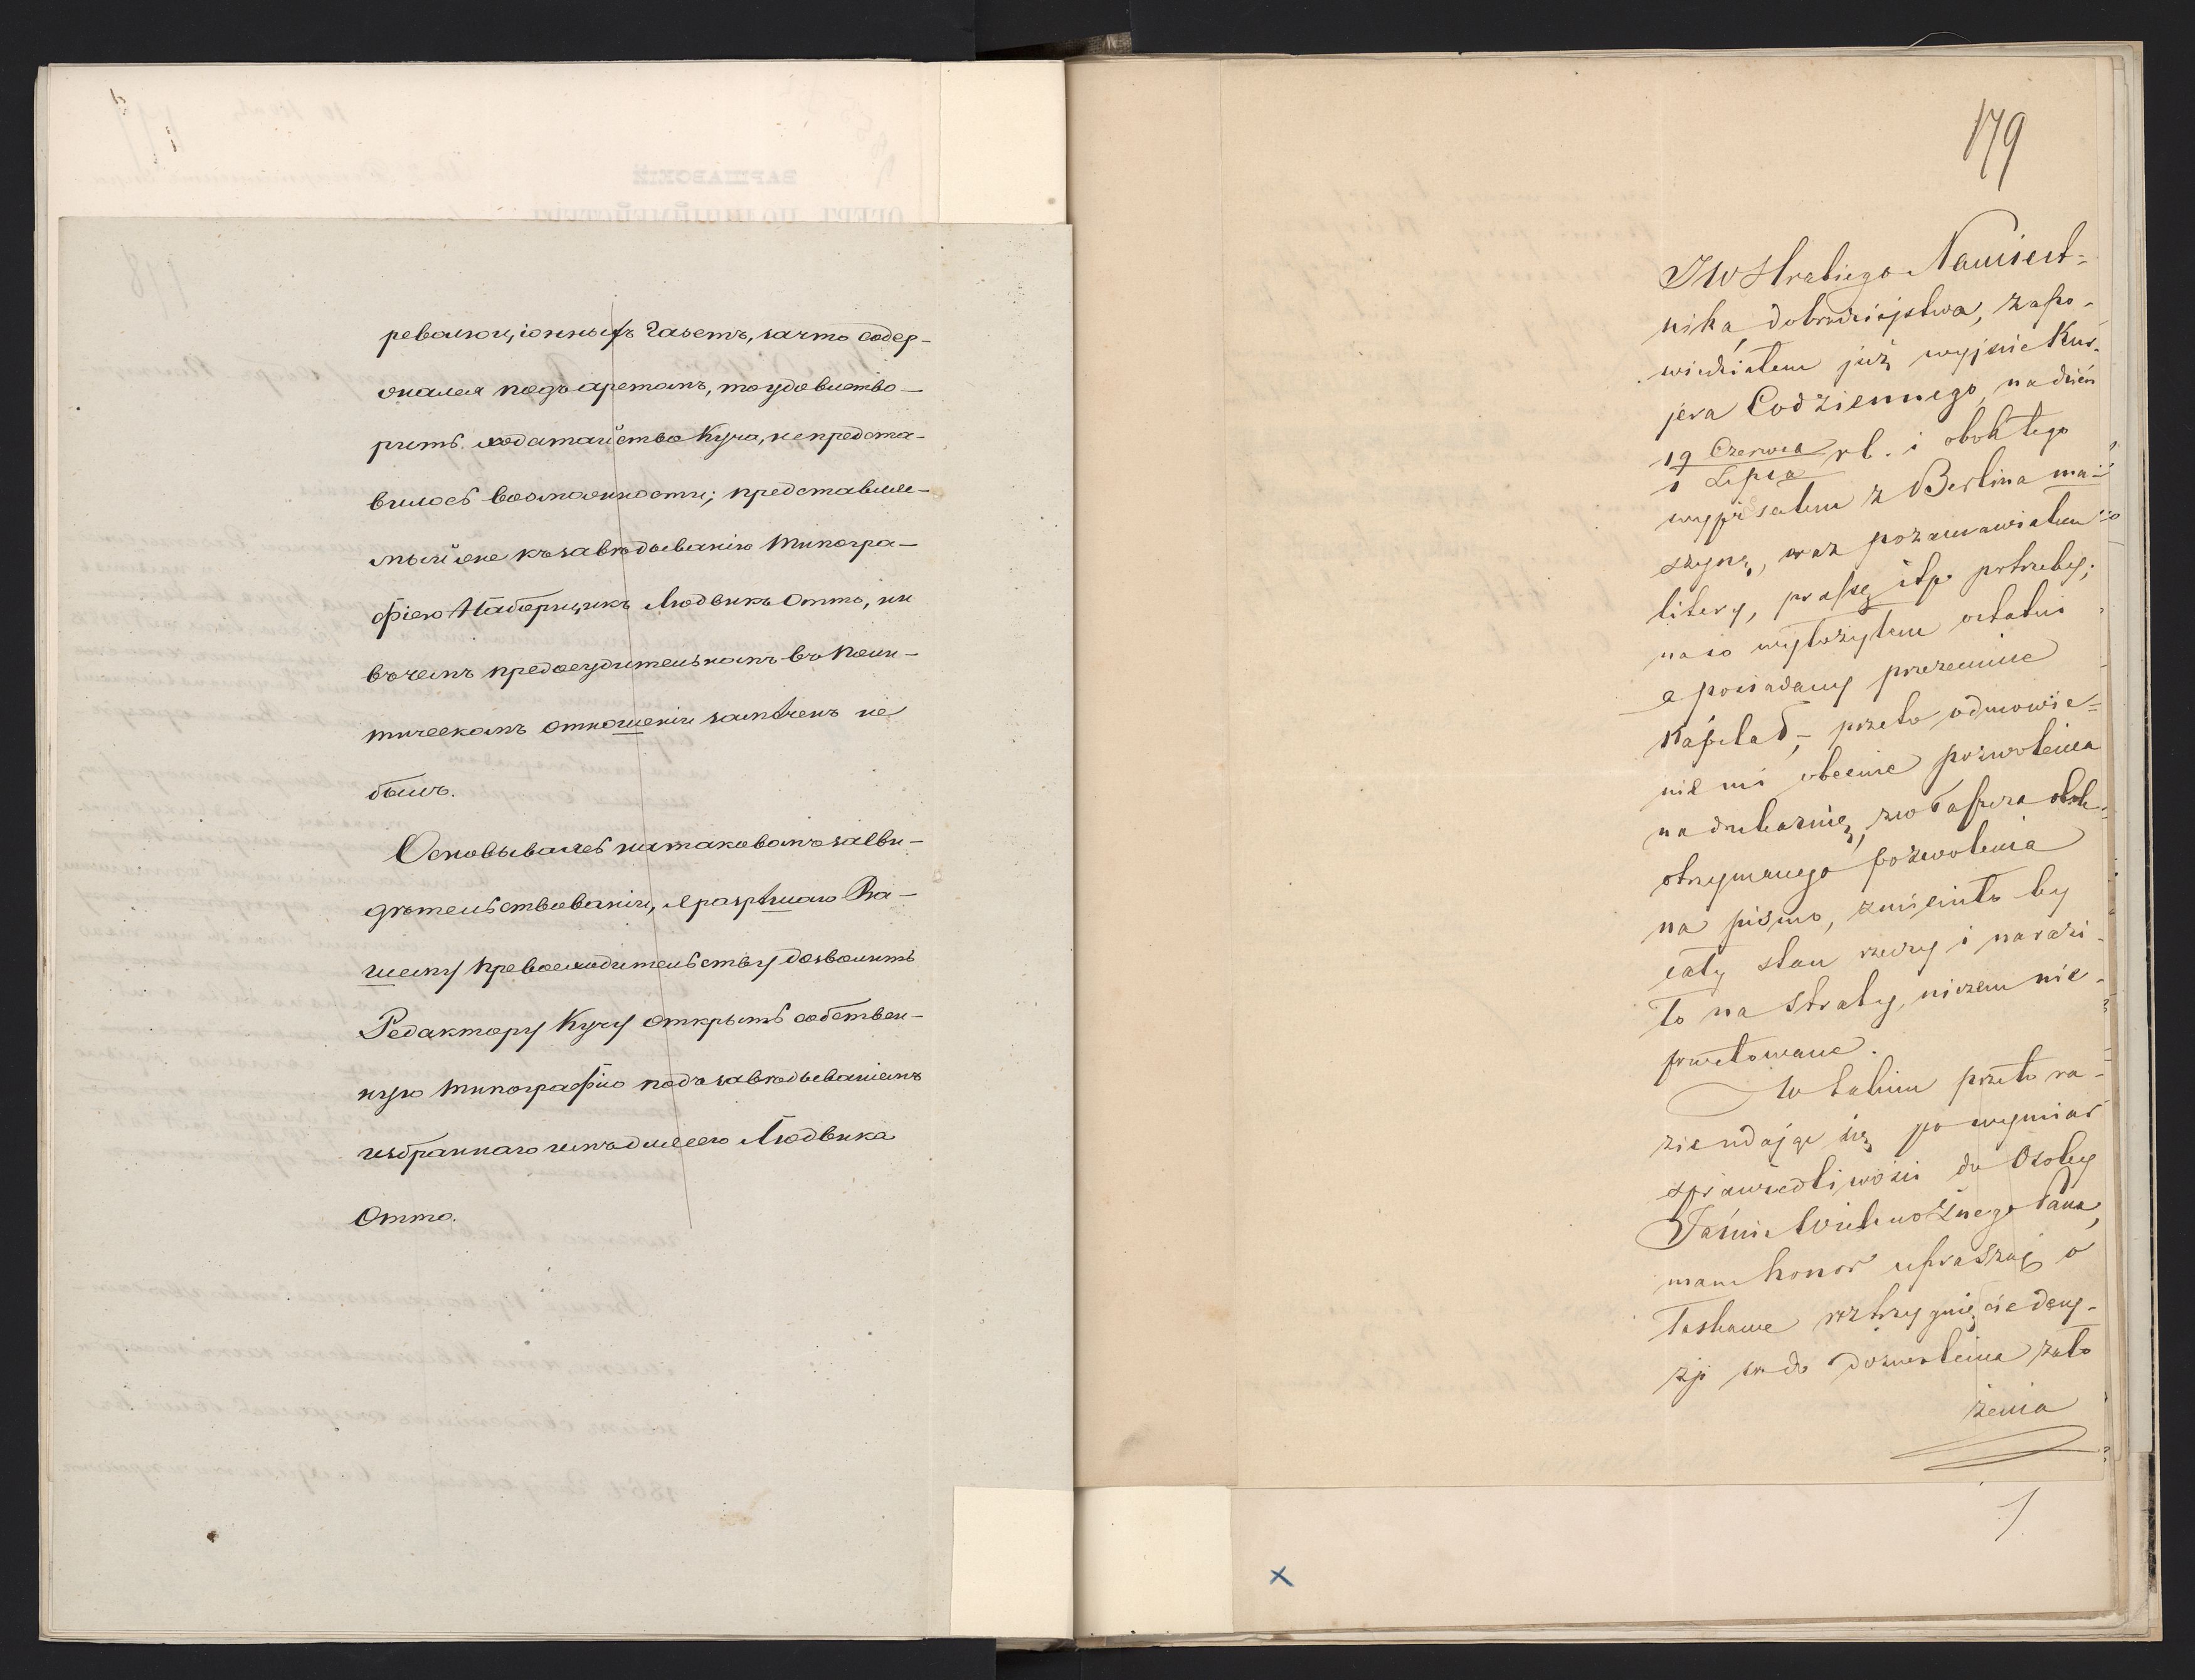 революціонныхъ Газетъ, за что содер-
жался подъ арестомъ, то удовлетво-
рить ходатайство Куча, не предста-
вилось возможности; представляе-
мый же къ завѣдыванію типогра-
фіею Наборщикъ Людвикъ Отто, ни
въ чемъ предосудительномъ въ поли-
тическомъ отношеніи замѣченъ не
былъ.
Основываясь на таковомъ засви-
дѣтельствованіи, я разрѣшаю Ва-
шему Превосходительству дозволить
Редактору Кучу открыть собствен-
ную типографію подъ завѣдываніемъ
избраннаго имъ для сего Людвика
Отто.
179
JW Hrabiego Namiest-
nika, dobrodziejstwa, zapo-
wiedziałem już wyjście Kur-
jera Codziennego, na dzień
19 Czerwca
1 Lipca rb. i obok tego
wypisałem z Berlina ma-
szynę, oraz pozamawiałem
litery, prassę itp potrzeby;
na co wyłożyłem ostatni
a posiadany przezemnie
Kapitał, – przeto odmowie-
nie mi obecnie pozwolenia
na drukarnię, zwłaszcza obok
otrzymanego pozwolenia
na pismo, zmieniło by
cały stan rzeczy i narazi-
ło na straty, niczem nie-
powetowane.
W takim przeto ra-
zie udając się po wymiar
sprawiedliwości do Osoby
Jaśnie Wielmożnego Pana,
mam honor upraszać o
łaskawe rozstrzygnięcie decy-
zji co do dozwolenia zało
żenia